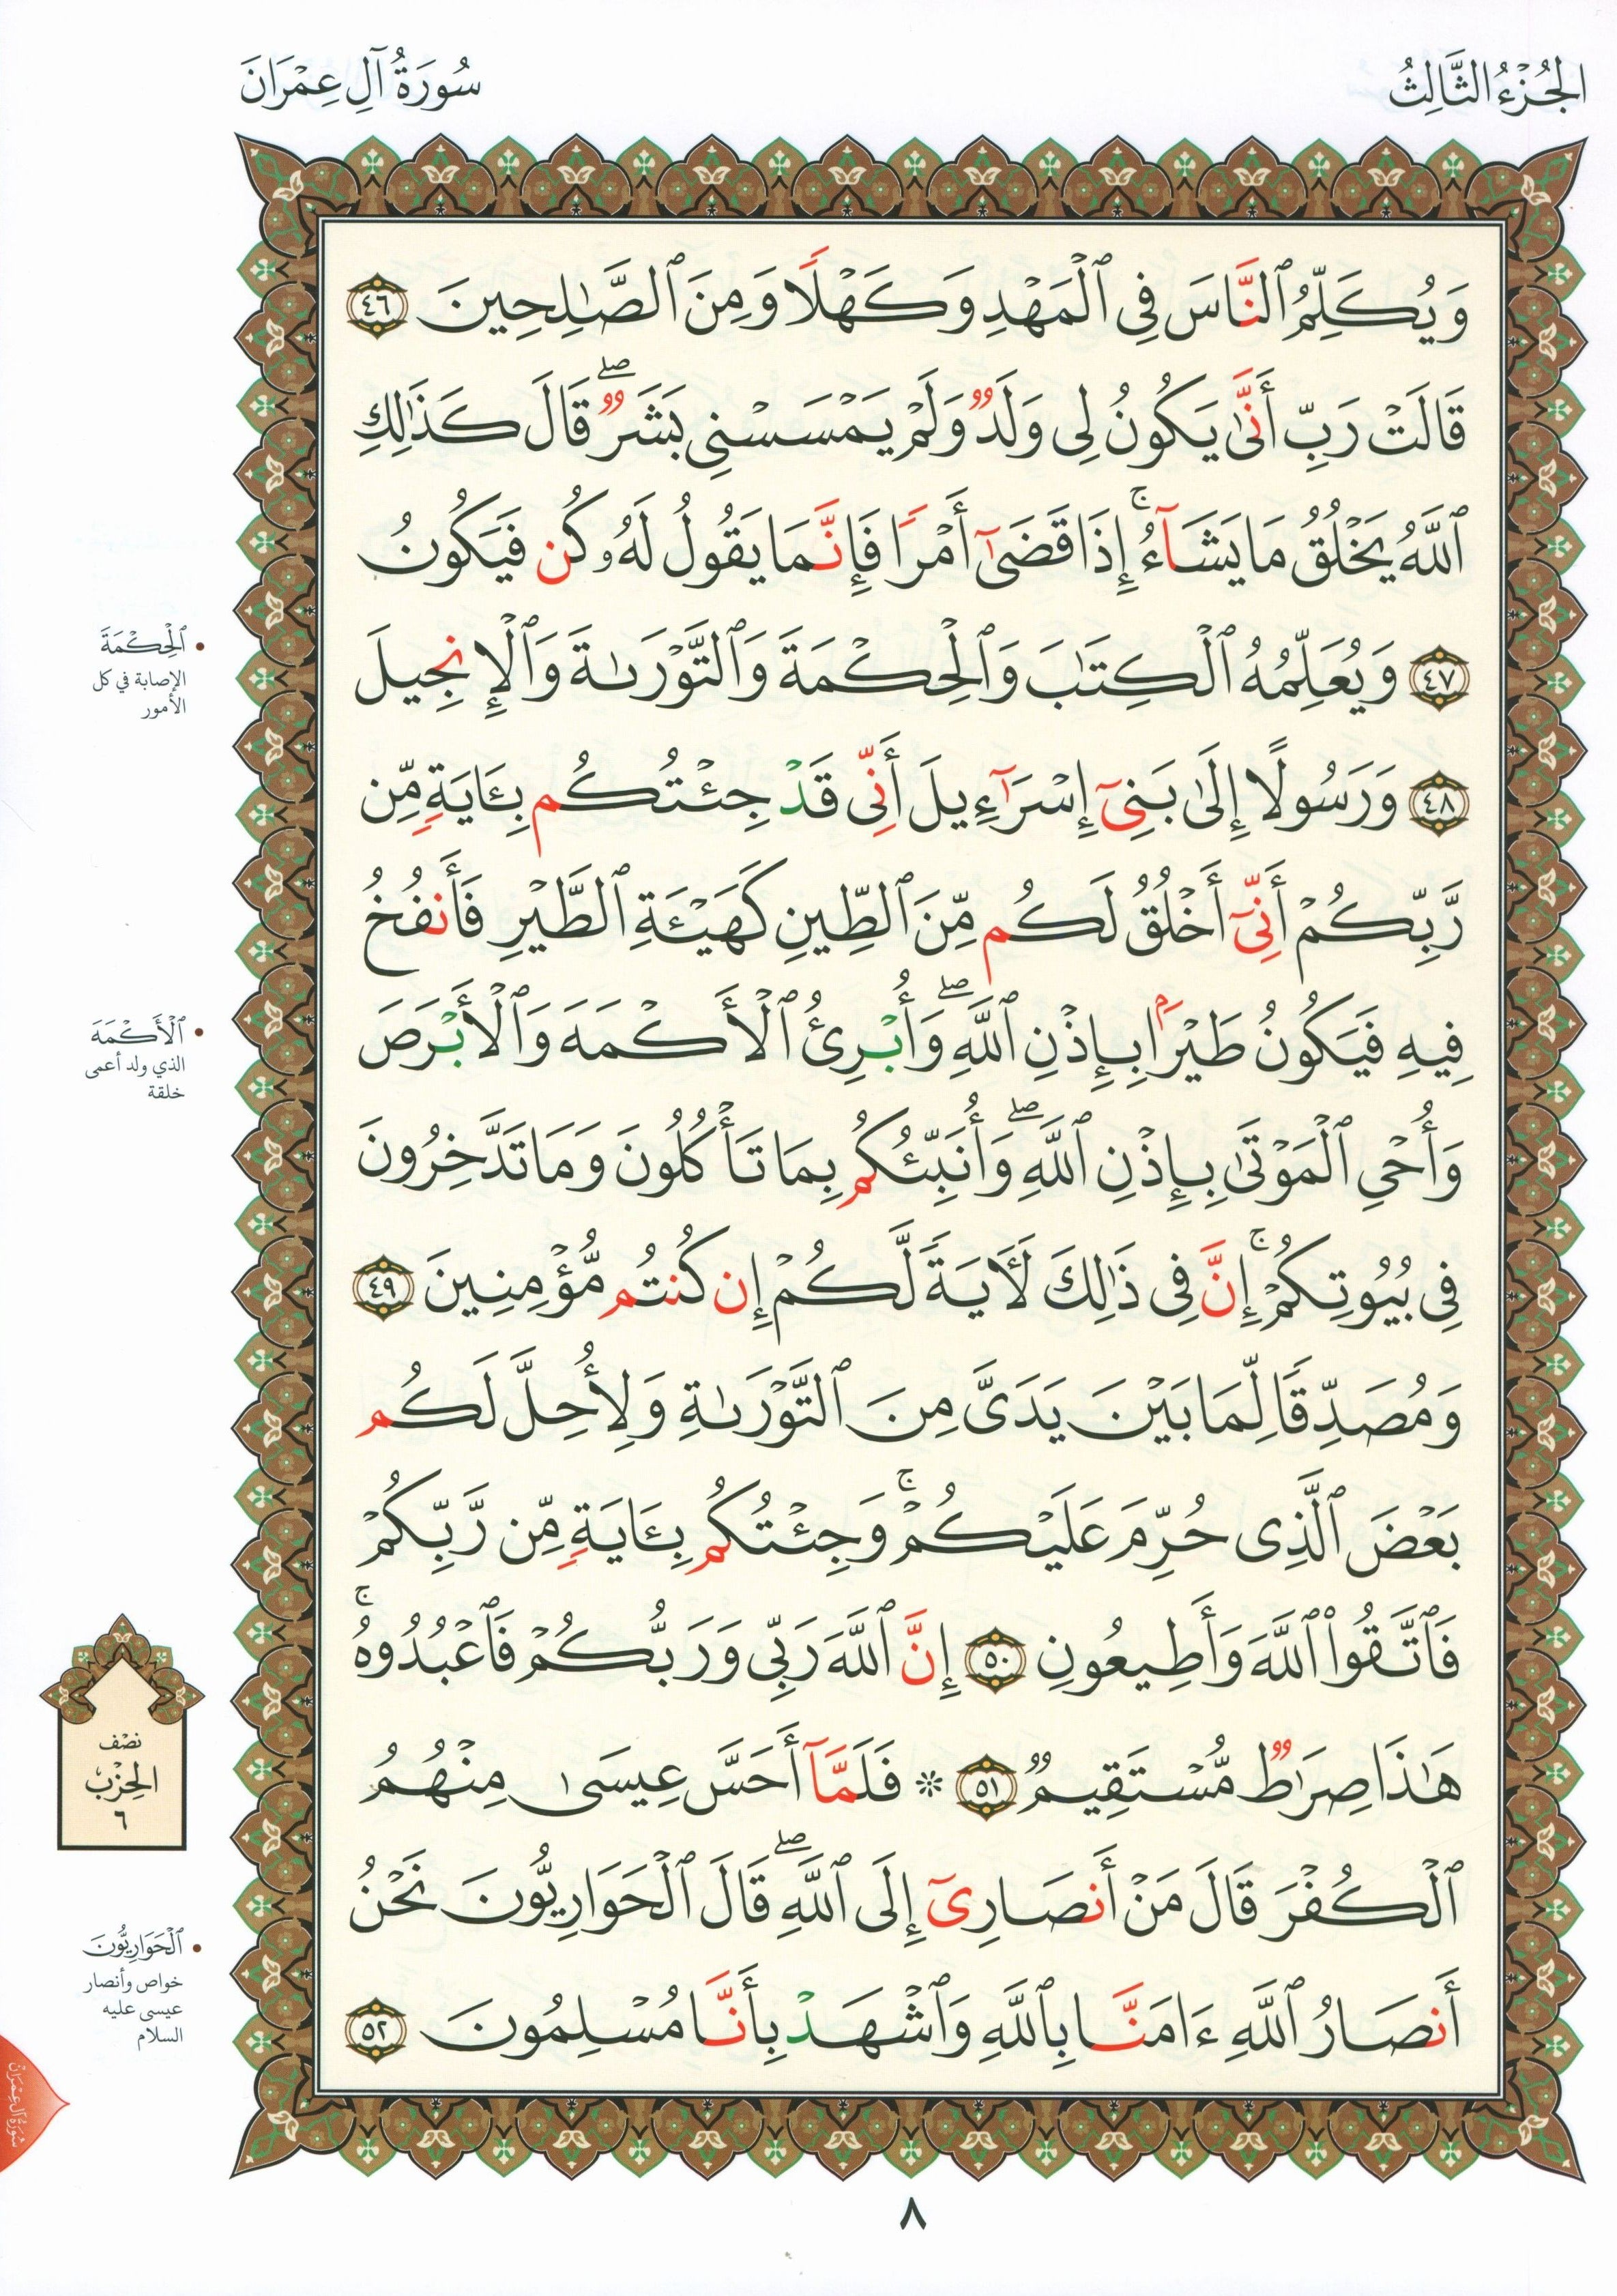 الجُزْءُ الثَّالِثُ
سُورَةُ آلِ عِمْرَانَ
وَيُكَلِّمُ ٱلنَّاسَ فِى ٱلْمَهْدِ وَكَهْلًا وَمِنَ ٱلصَّٰلِحِينَ ٤٦
قَالَتْ رَبِّ أَنَّىٰ يَكُونُ لِى وَلَدٌ وَلَمْ يَمْسَسْنِى بَشَرٌ ۖ قَالَ كَذَٰلِكِ
ٱللَّهُ يَخْلُقُ مَا يَشَآءُ ۚ إِذَا قَضَىٰٓ أَمْرًا فَإِنَّمَا يَقُولُ لَهُۥ كُن فَيَكُونُ
٤٧ وَيُعَلِّمُهُ ٱلْكِتَٰبَ وَٱلْحِكْمَةَ وَٱلتَّوْرَىٰةَ وَٱلْإِنجِيلَ
٤٨ وَرَسُولًا إِلَىٰ بَنِىٓ إِسْرَٰٓءِيلَ أَنِّى قَدْ جِئْتُكُم بِـَٔايَةٍ مِّن
رَّبِّكُمْ أَنِّىٓ أَخْلُقُ لَكُم مِّنَ ٱلطِّينِ كَهَيْـَٔةِ ٱلطَّيْرِ فَأَنفُخُ
فِيهِ فَيَكُونُ طَيْرًۢا بِإِذْنِ ٱللَّهِ ۖ وَأُبْرِئُ ٱلْأَكْمَهَ وَٱلْأَبْرَصَ
وَأُحْىِ ٱلْمَوْتَىٰ بِإِذْنِ ٱللَّهِ ۖ وَأُنَبِّئُكُم بِمَا تَأْكُلُونَ وَمَا تَدَّخِرُونَ
فِى بُيُوتِكُمْ ۚ إِنَّ فِى ذَٰلِكَ لَـَٔايَةً لَّكُمْ إِن كُنتُم مُّؤْمِنِينَ ٤٩
وَمُصَدِّقًا لِّمَا بَيْنَ يَدَىَّ مِنَ ٱلتَّوْرَىٰةِ وَلِأُحِلَّ لَكُم
بَعْضَ ٱلَّذِى حُرِّمَ عَلَيْكُمْ ۚ وَجِئْتُكُم بِـَٔايَةٍ مِّن رَّبِّكُمْ
فَٱتَّقُوا۟ ٱللَّهَ وَأَطِيعُونِ ٥٠ إِنَّ ٱللَّهَ رَبِّى وَرَبُّكُمْ فَٱعْبُدُوهُ ۚ
هَٰذَا صِرَٰطٌ مُّسْتَقِيمٌ ٥١ ۞ فَلَمَّآ أَحَسَّ عِيسَىٰ مِنْهُمُ
ٱلْكُفْرَ قَالَ مَنْ أَنصَارِىٓ إِلَى ٱللَّهِ ۖ قَالَ ٱلْحَوَارِيُّونَ نَحْنُ
أَنصَارُ ٱللَّهِ ءَامَنَّا بِٱللَّهِ وَٱشْهَدْ بِأَنَّا مُسْلِمُونَ ٥٢
• ٱلْحِكْمَةَ
الإصابة في كل
الأمور
• ٱلْأَكْمَهَ
الذي ولد أعمى
خلقة
نصْف
الحِزْب
٦
• ٱلْحَوَارِيُّونَ
خواص وأنصار
عيسى عليه
السلام
سُورَةُ آلِ عِمْرَانَ
٨